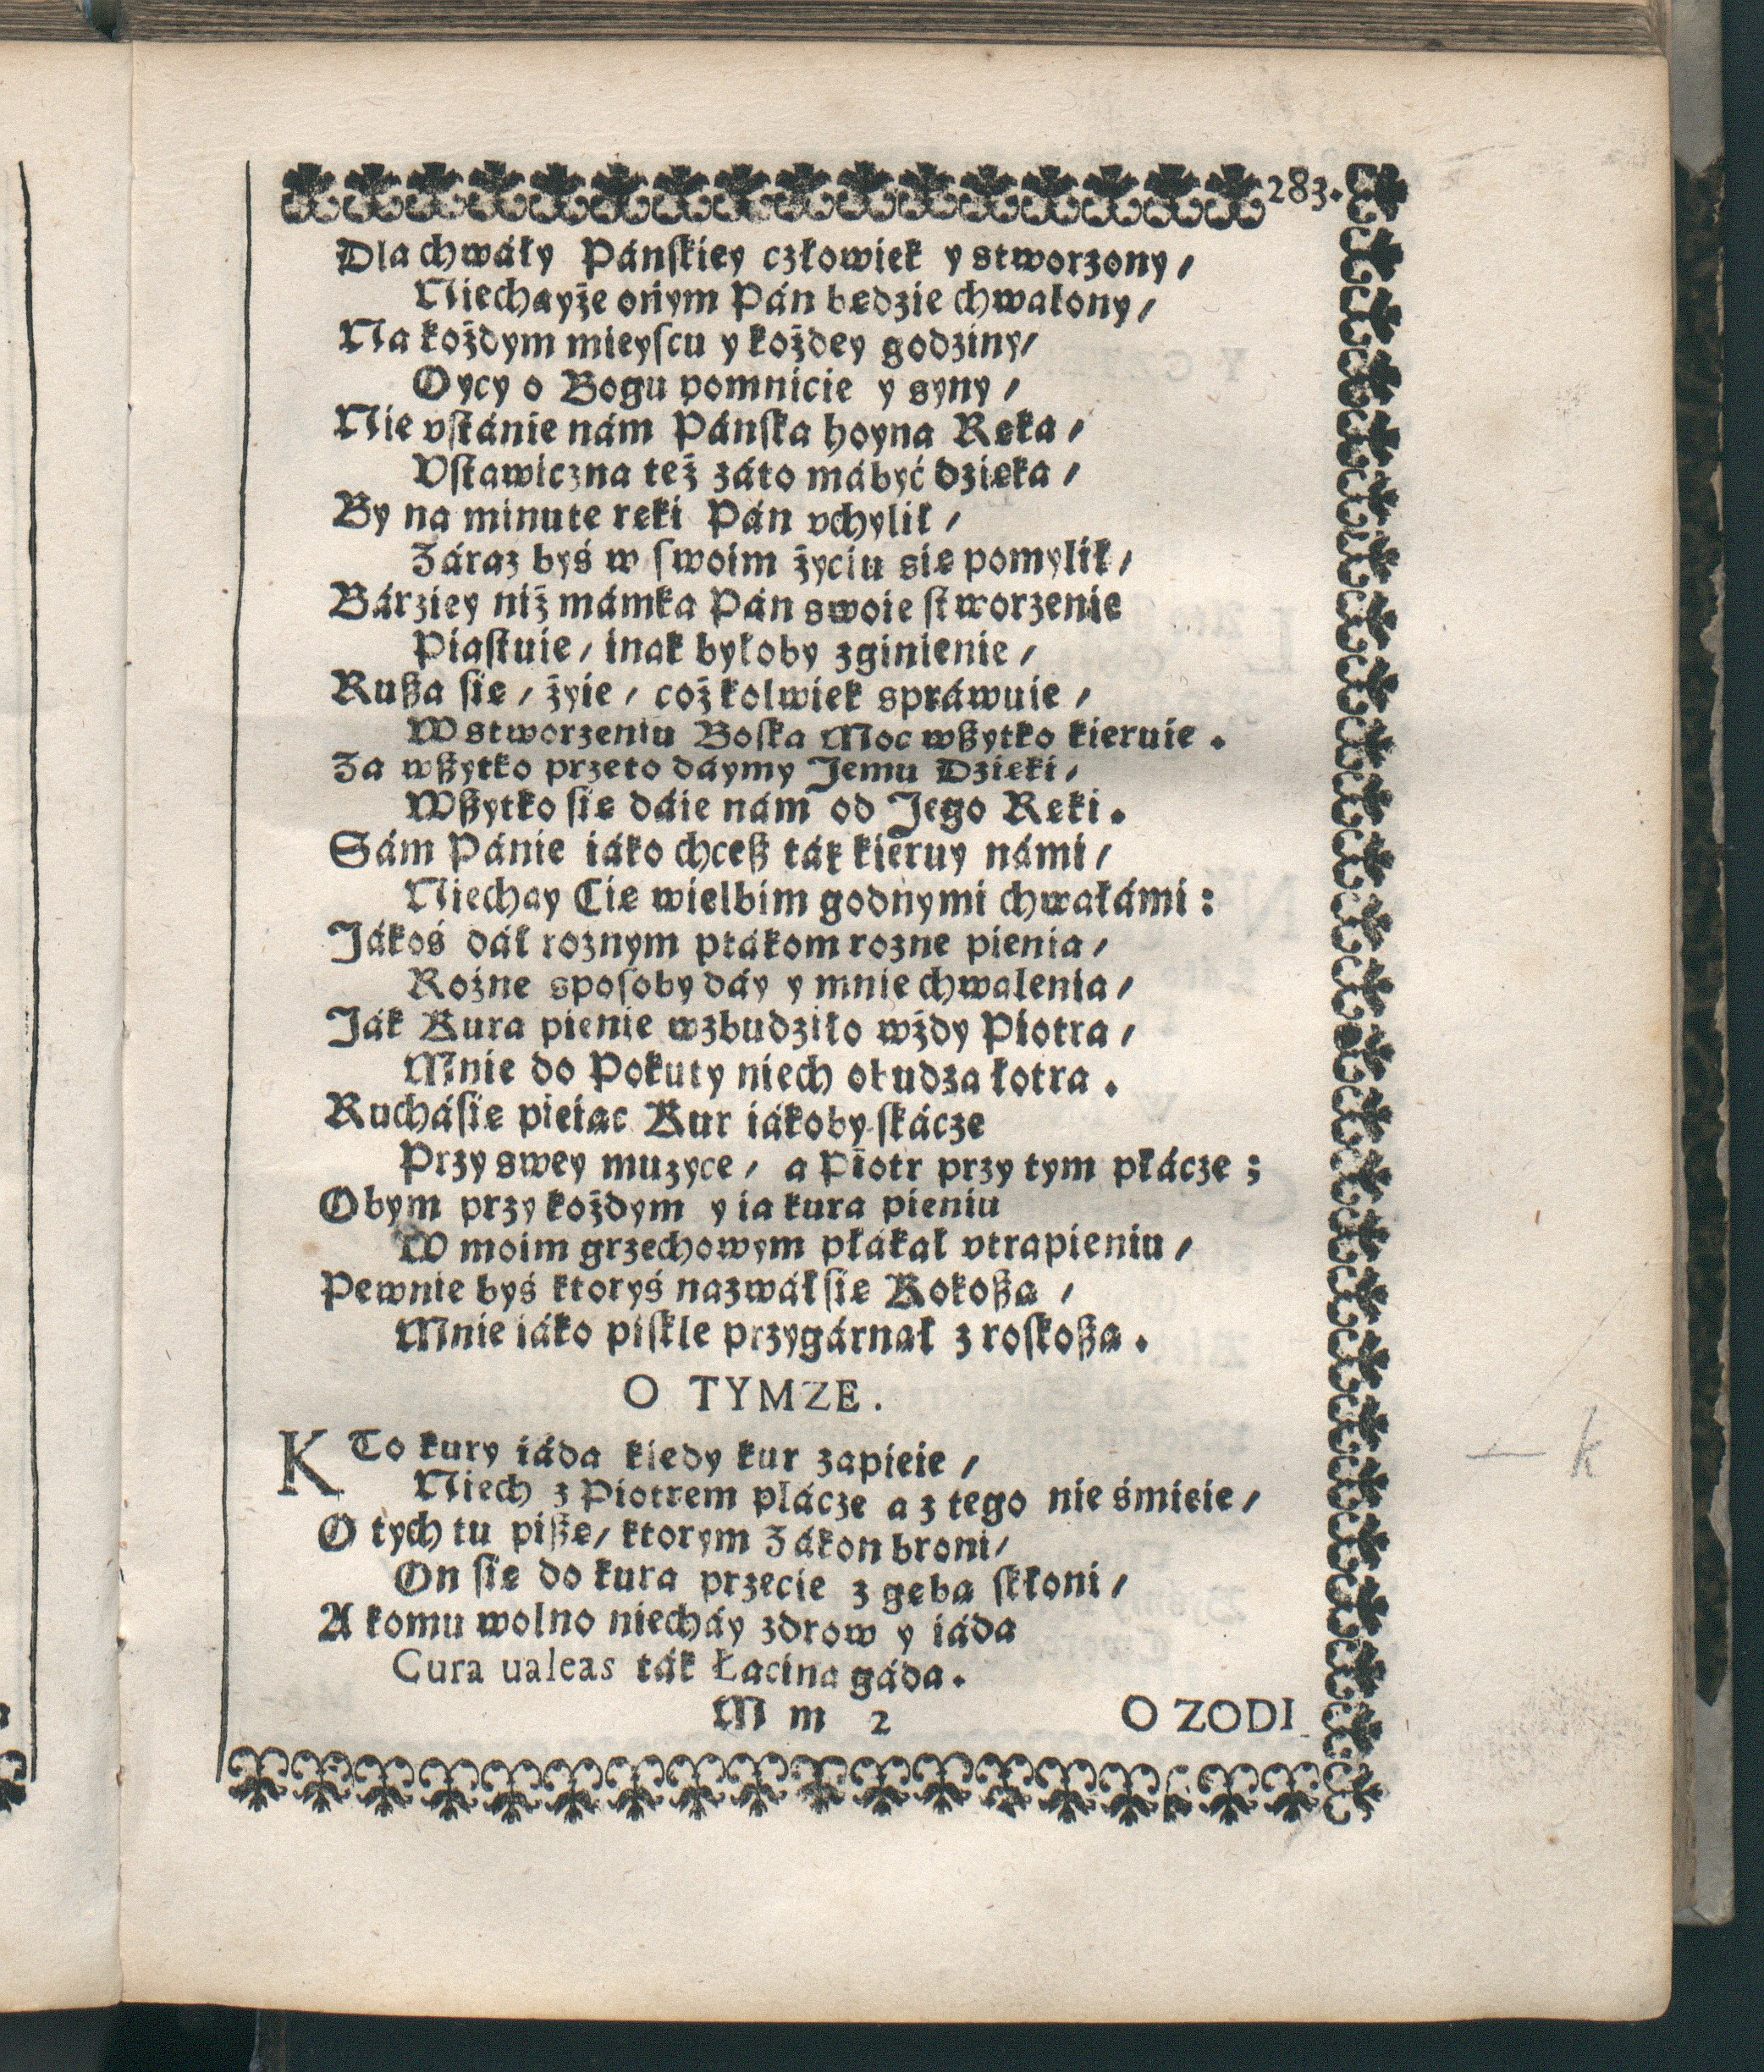 283.
Dla chwáły Páńſkiey człowiek y stworzony /
Niechayże onym Pán będzie chwalony /
Na kożdym mieyſcu y kożdey godziny /
Oycy o Bogu pomnicie y syny /
Nie vſtánie nám Páńſka hoyna Ręka /
Vſtawiczna też záto má być dzięka /
By na minutę ręki Pán vchylił /
Záraz byś w ſwoim życiu się pomylił /
Bárziey niż mámka Pán swoie ſtworzenie
Piaſtuie / inak byłoby zginienie /
Rußa ſię / żyie / coż kolwiek spráwuie /
W stworzeniu Boſka Moc wßytko kieruie .
Za wßytko przeto dáymy Jemu Dzięki /
Wßytko ſię dáie nám od Jego Ręki .
Sám Pánie iáko chceß ták kieruy námi /
Niechay Cię wielbim godnymi chwałámi :
Jákoś dáł roznym ptákom rozne pienia /
Rożne spoſoby dáy y mnie chwalenia /
Ják Kura pienie wzbudziło wżdy Piotra /
Mnie do Pokuty niech obudza łotra .
Ruchá ſię pieiąc Kur iákoby ſkácze
Przy swey muzyce / a Piotr przy tym płácze ;
Obym przy kożdym y ia kura pieniu
W moim grzechowym płákał vtrapieniu /
Pewnie byś ktoryś nazwáł ſię Kokoßą /
Mnie iáko piſklę przygárnął z roſkoßą .
O TYMZE .
KTo kury iáda kiedy kur zapieie /
Niech z Piotrem płácze a z tego nie śmieie /
O tych tu pißę / ktorym Zákon broni /
On ſię do kura przecie z gębą ſkłoni /
A komu wolno niecháy zdrow y iáda
Cura ualeas ták Łacina gáda .
M m 2
O ZODI
— k